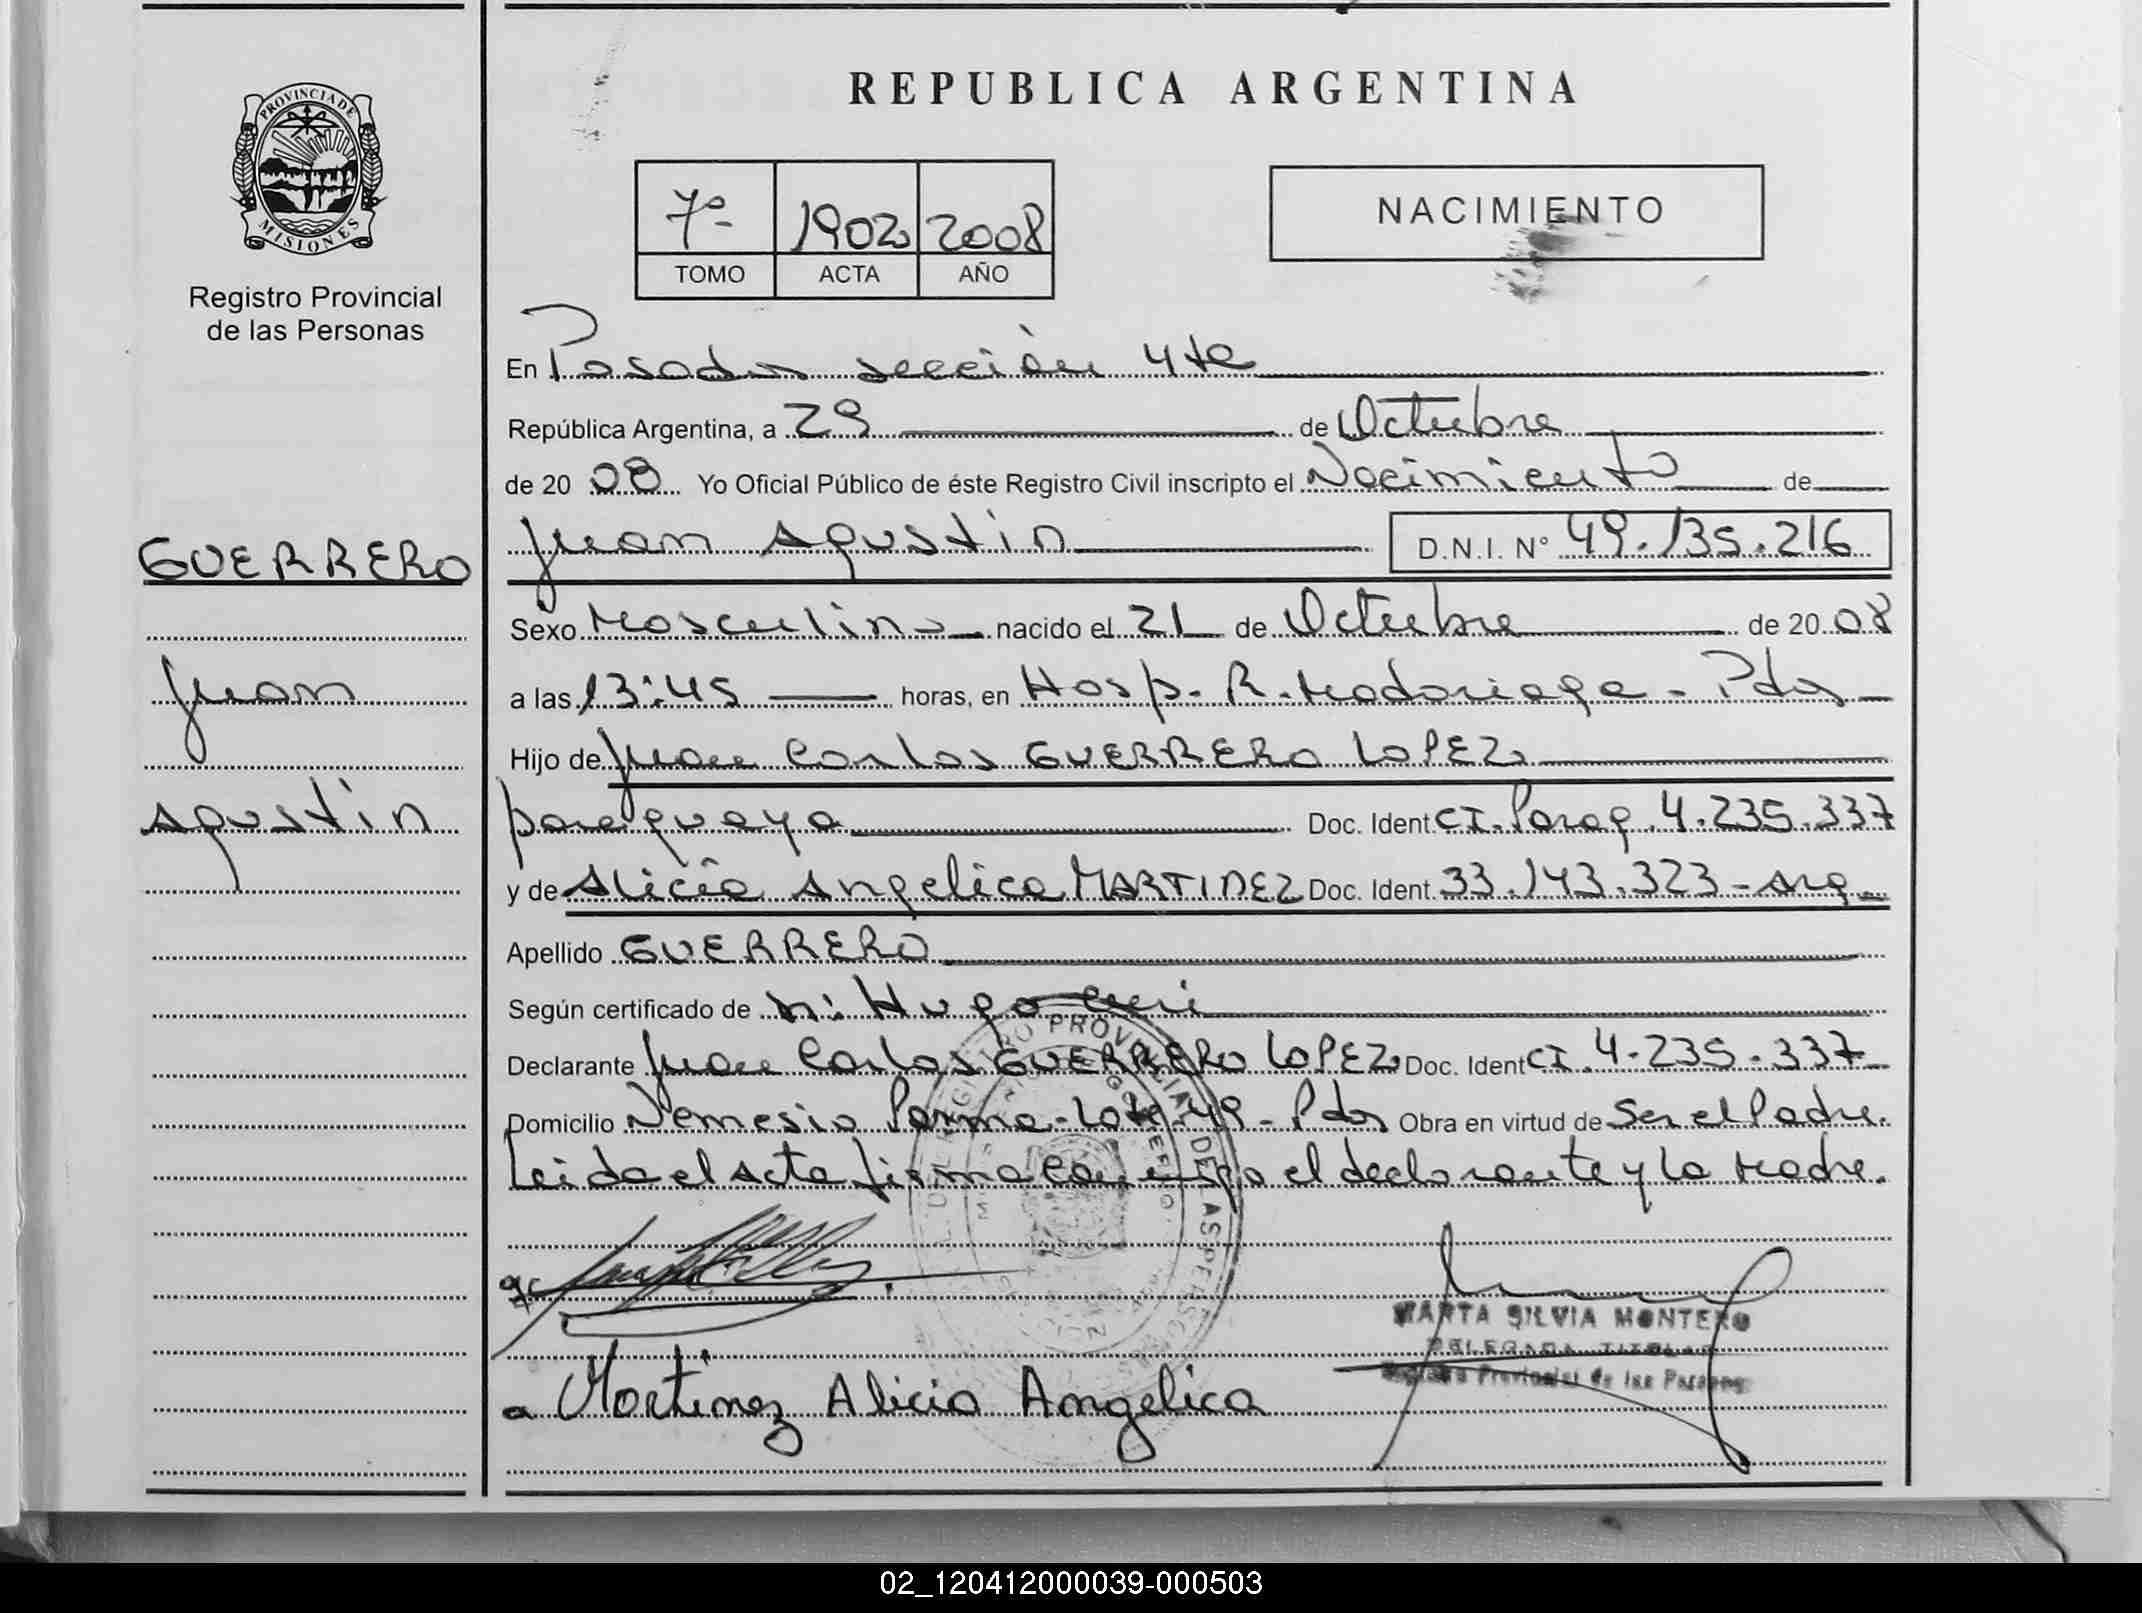 REPUBLICA ARGENTINA
PROVINCIA DE MISIONES
Registro Provincial
de las Personas
7º 1902 2008
TOMO ACTA AÑO
NACIMIENTO
En Posadas sección 4ta
República Argentina, a 29 de Octubre
de 2008 Yo Oficial Público de éste Registro Civil inscripto el Nacimiento de
Juan Agustín D.N.I. Nº 49.135.216
GUERRERO
Juan
Agustín
Sexo Masculino nacido el 21 de Octubre de 2008
a las 13:45 horas, en Hosp. R. Madariaga - Pdas
Hijo de Juan Carlos GUERRERO LOPEZ
paraguaya Doc. Ident CI. Parag. 4.235.337
y de Alicia Angelica MARTINEZ Doc. Ident. 33.143.323 - Arg.
Apellido GUERRERO
Según certificado de Hugo
Declarante Juan Carlos GUERRERO LOPEZ Doc. Ident CI. 4.235.337
Domicilio Nemesio Parma - Lote 49 - Pdas Obra en virtud de Ser el Padre.
Leida el Acta firma conmigo el declarante y la Madre.
MARTA SILVIA MONTERO
DELEGADA TITULAR
Registro Provincial de las Personas
a Martinez Alicia Angelica
02_120412000039-000503